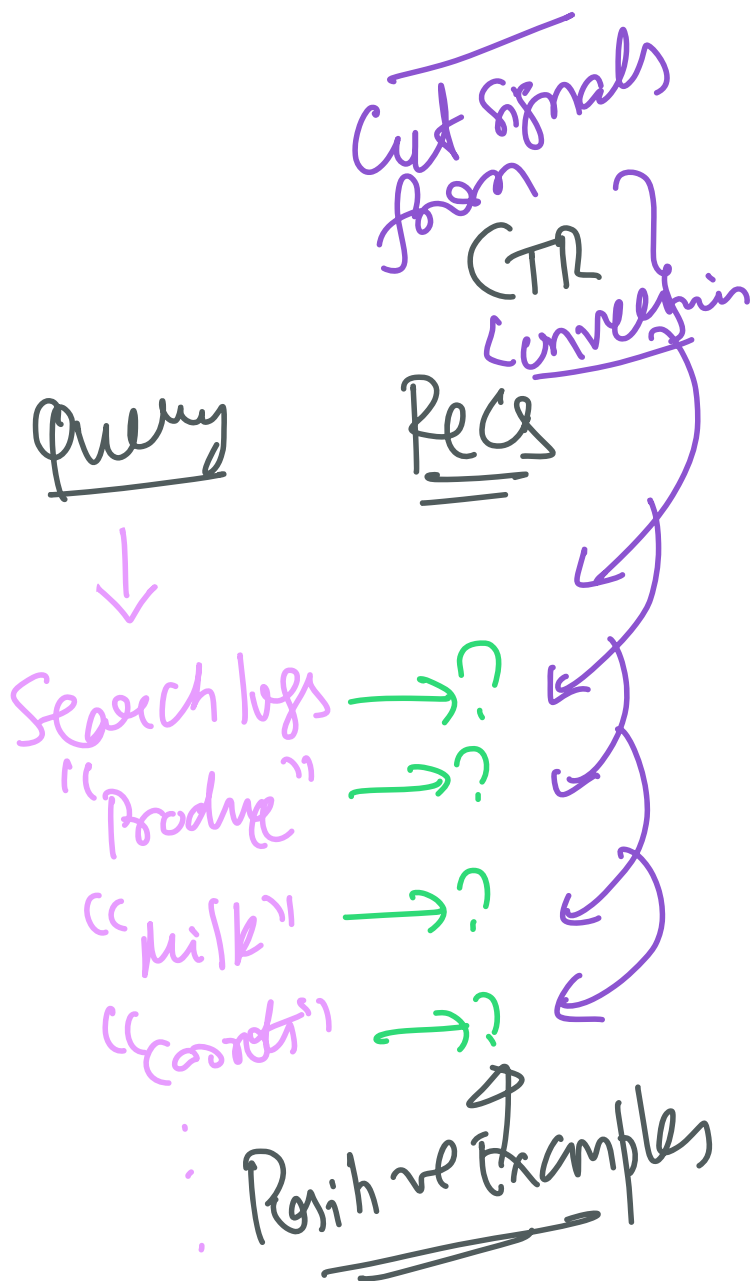 Cut signals
from
CTR
Conversion
Query
Recs
Search logs → ?
"Produce" → ?
"Milk" → ?
"Carrots" → ?
Positive Examples